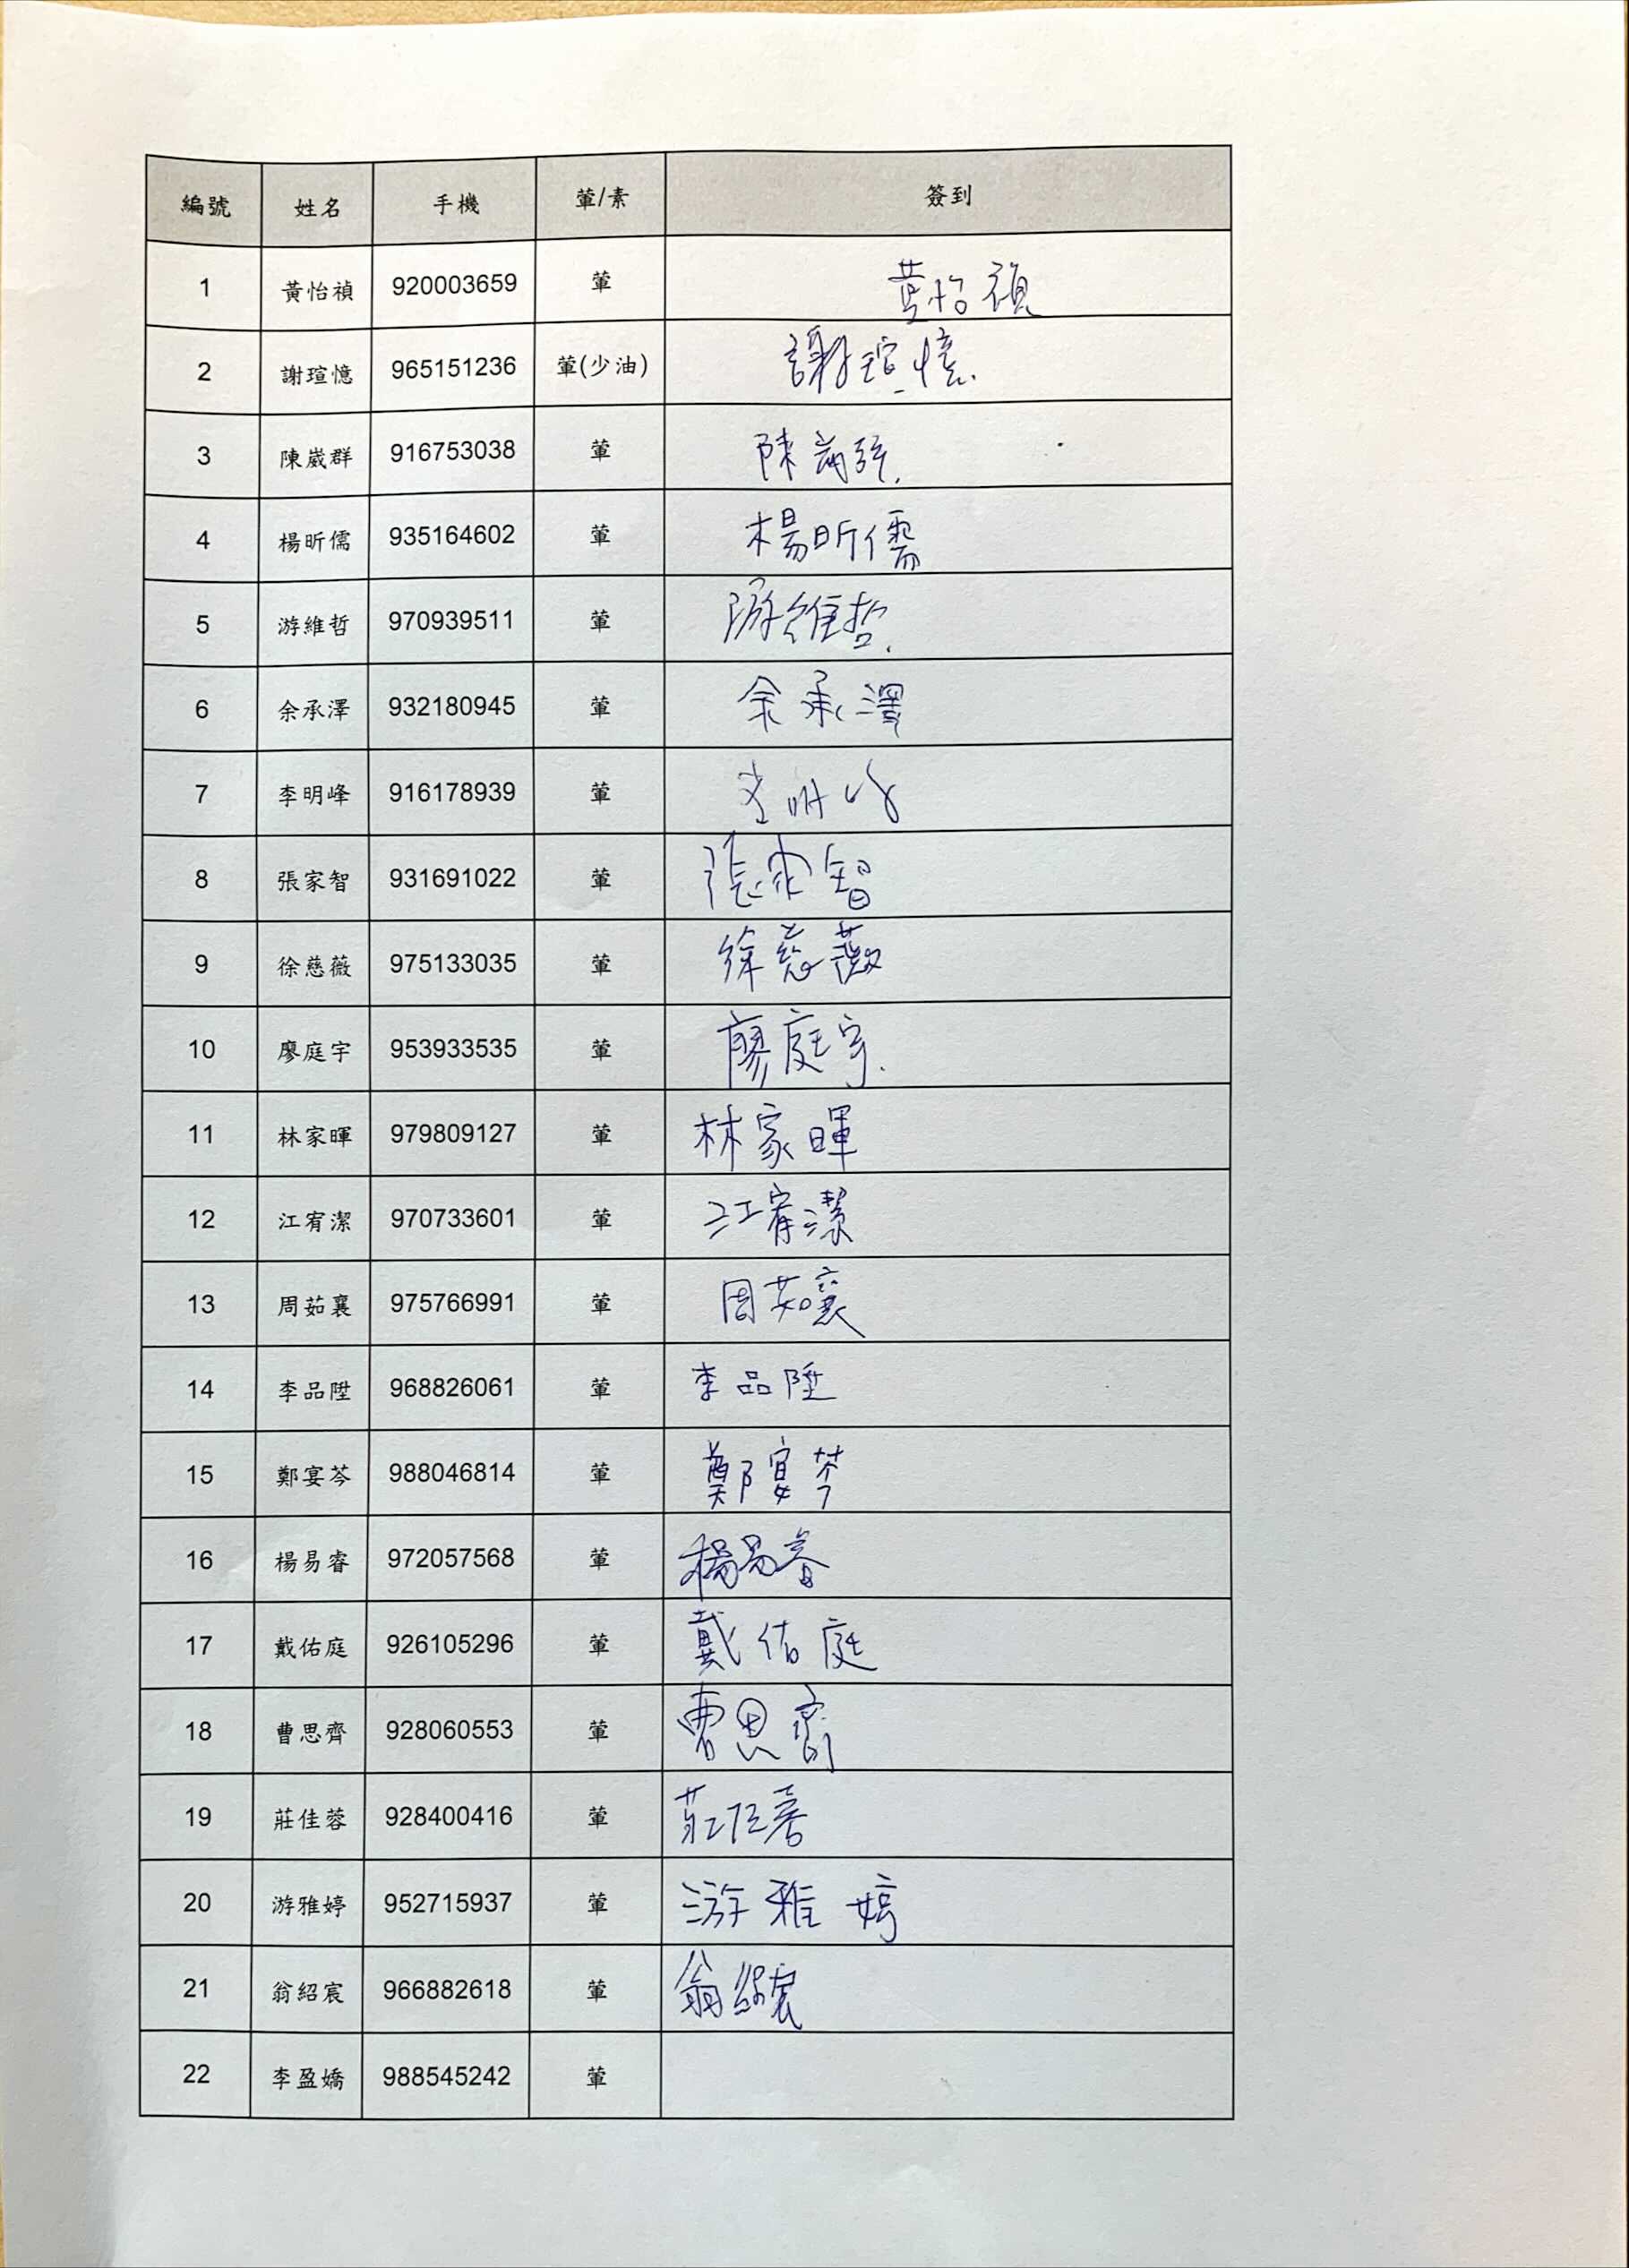 編號 姓名 手機 葷/素 簽到
1 黃怡禎 920003659 葷 黃怡禎
2 謝瑄憶 965151236 葷(少油) 謝瑄憶
3 陳崴群 916753038 葷 陳崴群
4 楊昕儒 935164602 葷 楊昕儒
5 游維哲 970939511 葷 游維哲
6 余承澤 932180945 葷 余承澤
7 李明峰 916178939 葷 李明峰
8 張家智 931691022 葷 張家智
9 徐慈薇 975133035 葷 徐慈薇
10 廖庭宇 953933535 葷 廖庭宇
11 林家暉 979809127 葷 林家暉
12 江宥潔 970733601 葷 江宥潔
13 周茹襄 975766991 葷 周茹襄
14 李品陞 968826061 葷 李品陞
15 鄭宴芩 988046814 葷 鄭宴芩
16 楊易睿 972057568 葷 楊易睿
17 戴佑庭 926105296 葷 戴佑庭
18 曹思齊 928060553 葷 曹思齊
19 莊佳蓉 928400416 葷 莊佳蓉
20 游雅婷 952715937 葷 游雅婷
21 翁紹宸 966882618 葷 翁紹宸
22 李盈嬌 988545242 葷